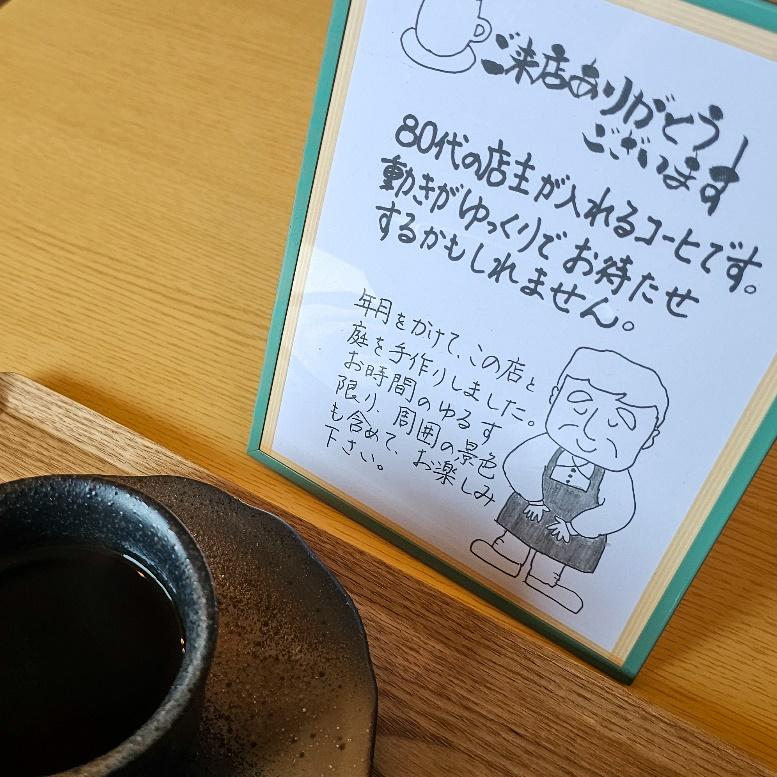 ご来店ありがとう！
ございます
80代の店主が入れるコーヒーです。
動きがゆっくりでお待たせ
するかもしれません。
年月をかけて、この店と
庭を手作りしました。
お時間のゆるす
限り、周囲の景色
も含めて、お楽しみ
下さい。